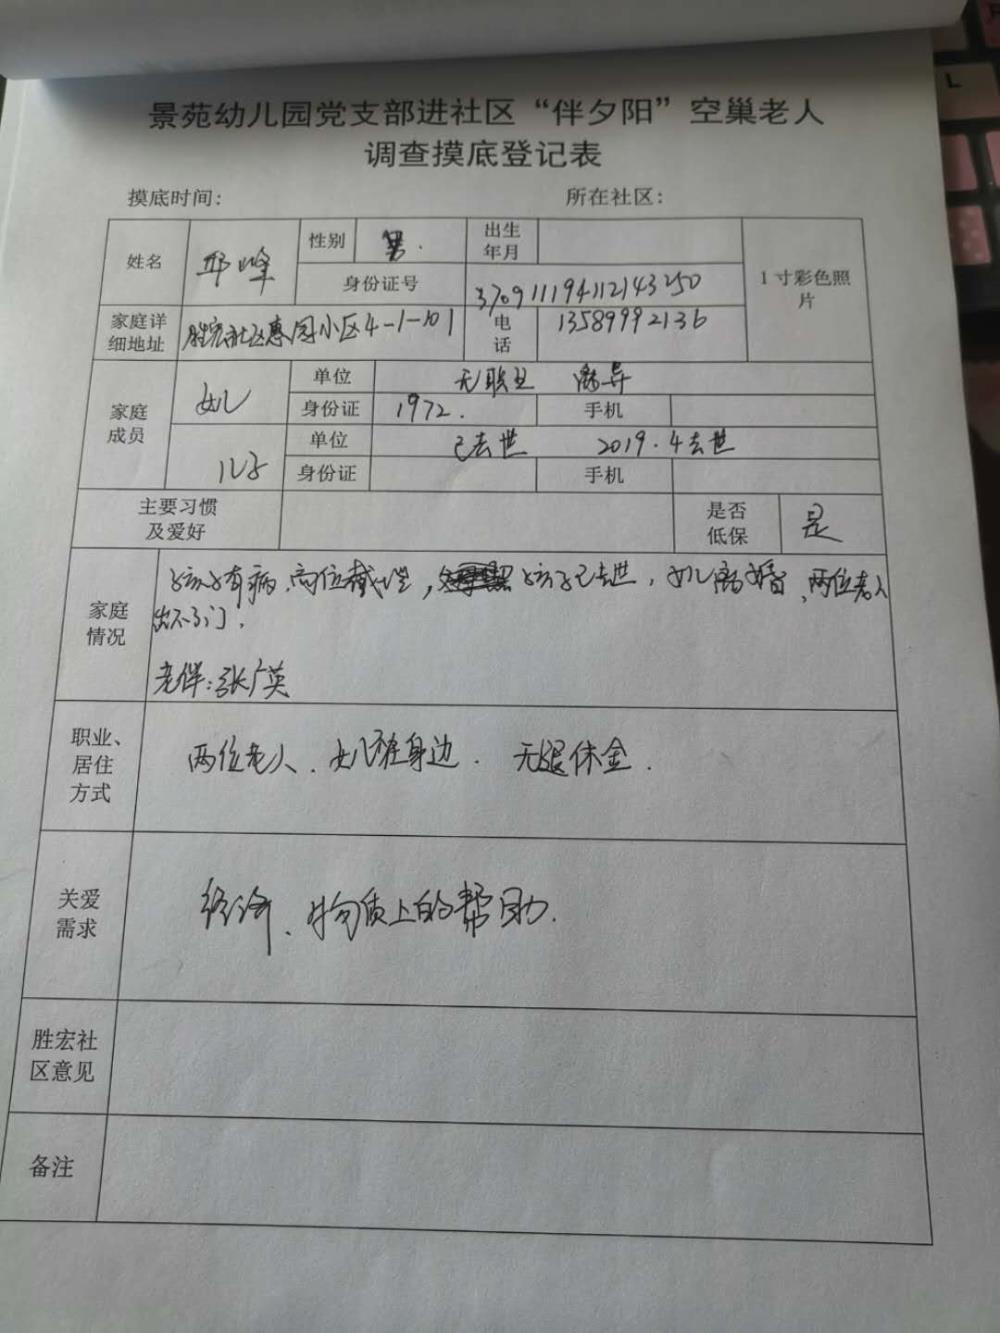 景苑幼儿园党支部进社区“伴夕阳”空巢老人
调查摸底登记表
摸底时间： 所在社区：
姓名 邱峰 性别 男. 出生年月 1寸彩色照片
身份证号 370911194112143250
家庭详细地址 胜宏社区惠园小区4-1-101 电话 13589992136
家庭成员 女儿 单位 无职业 离异
身份证 1972. 手机
儿子 单位 已去世 2019.4去世
身份证 手机
主要习惯及爱好 是否低保 是
家庭情况 孩子有病、高位截瘫， 孩子已去世，女儿离婚、两位老人
出不了门.
老伴：张广英
职业、居住方式 两位老人、女儿在身边. 无退休金.
关爱需求 经济、物质上的帮助.
胜宏社区意见
备注
L